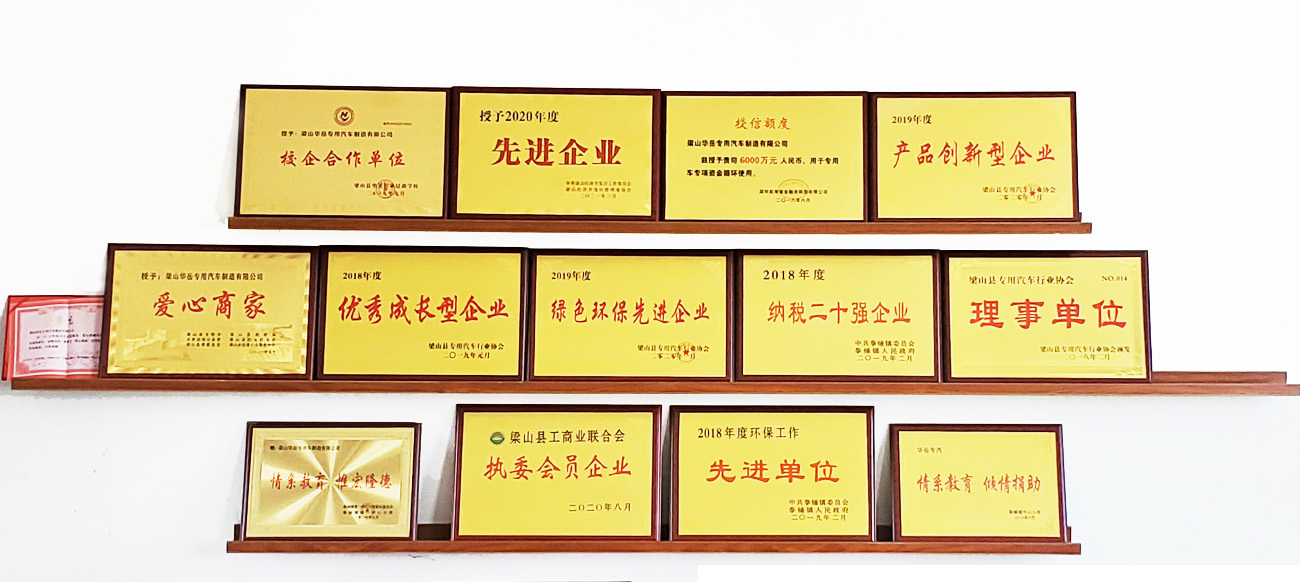 授予：梁山华岳专用汽车制造有限公司
校企合作单位
授予2020年度
先进企业
二〇二一年二月
授信额度
梁山华岳专用汽车制造有限公司
兹授予贵司6000万元人民币，用于专用
车专项资金循环使用。
二〇一六年八月
2019年度
产品创新型企业
梁山县专用汽车行业协会
授予：梁山华岳专用汽车制造有限公司
爱心商家
2018年度
优秀成长型企业
梁山县专用汽车行业协会
二〇一九年元月
2019年度
绿色环保先进企业
梁山县专用汽车行业协会
2018年度
纳税二十强企业
中共拳铺镇委员会
拳铺镇人民政府
二〇一九年二月
梁山县专用汽车行业协会
NO.014
理事单位
梁山县专用汽车行业协会颁发
二〇一八年二月
梁山华岳专用车制造有限公司
情系教育 惟宏隆德
梁山县工商业联合会
执委会员企业
二〇二〇年八月
2018年度环保工作
先进单位
中共拳铺镇委员会
拳铺镇人民政府
二〇一九年二月
华岳专汽
情系教育 倾情捐助